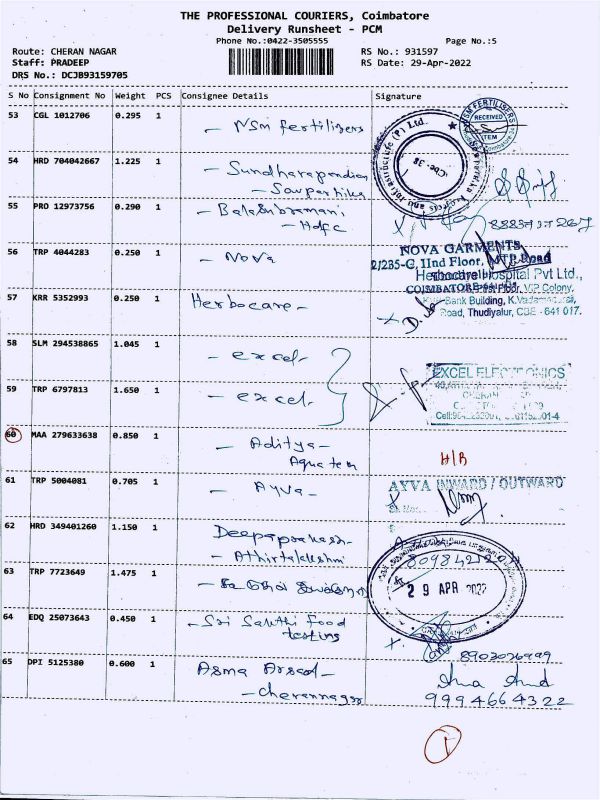 THE PROFESSIONAL COURIERS, Coimbatore
Delivery Runsheet - PCM
Phone No.:0422-3505555
Page No.:5
Route: CHERAN NAGAR
RS No.: 931597
Staff: PRADEEP
RS Date: 29-Apr-2022
DRS No.: DCJB93159705
S No Consignment No Weight PCS Consignee Details Signature
53 CGL 1012706 0.295 1 - NSM fertilizers
RECEIVED
54 HRD 704042667 1.225 1 - Sundharapandian
- Savparnika
55 PRO 12973756 0.290 1 - Balasubramani
- Hdfc
56 TRP 4044283 0.250 1 - Nova
NOVA GARMENTS
2/285-G, IInd Floor, MTP Road
57 KRR 5352993 0.250 1 Herbocare -
Hospital Pvt Ltd.,
COIMBATORE
Floor, VIP Colony,
Bank Building,
Road, Thudiyalur, CBE - 641 017.
58 SLM 294538865 1.045 1 - excel
59 TRP 6797813 1.650 1 - excel
EXCEL ELECTRONICS
60 MAA 279633638 0.850 1 - Aditya -
Aqua tech
61 TRP 5004081 0.705 1 - Ayva -
AYVA INWARD / OUTWARD
62 HRD 349401260 1.150 1 Deepaprakash -
- Athirtalakshmi
63 TRP 7723649 1.475 1
29 APR 2022
64 EDQ 25073643 0.450 1 - Sri Sakthi Food
testing
8903026999
65 DPI 5125380 0.600 1 Asma Arsad -
- Cherannagar
9994664322